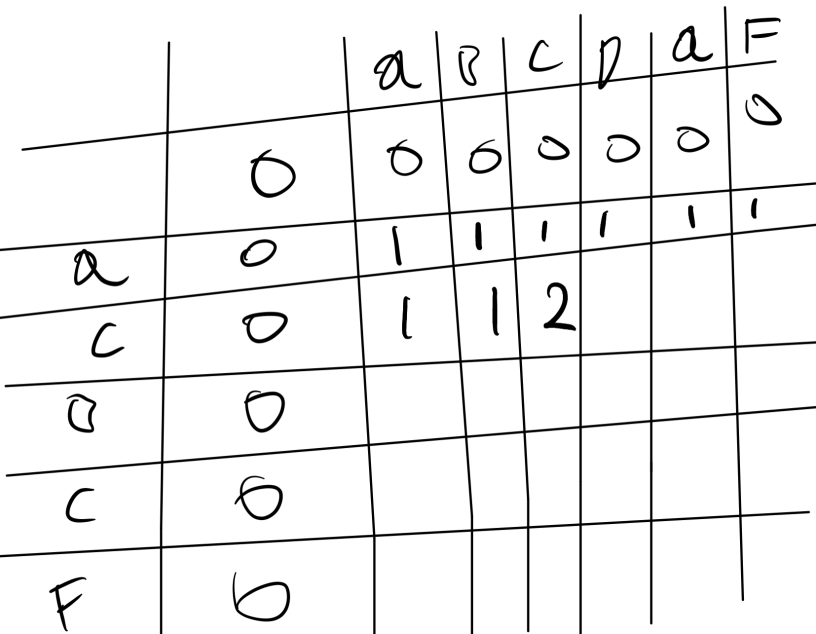 a B C D a F
0 0 0 0 0 0 0
a 0 1 1 1 1 1 1
C 0 1 1 2
B 0
C 0
F 0